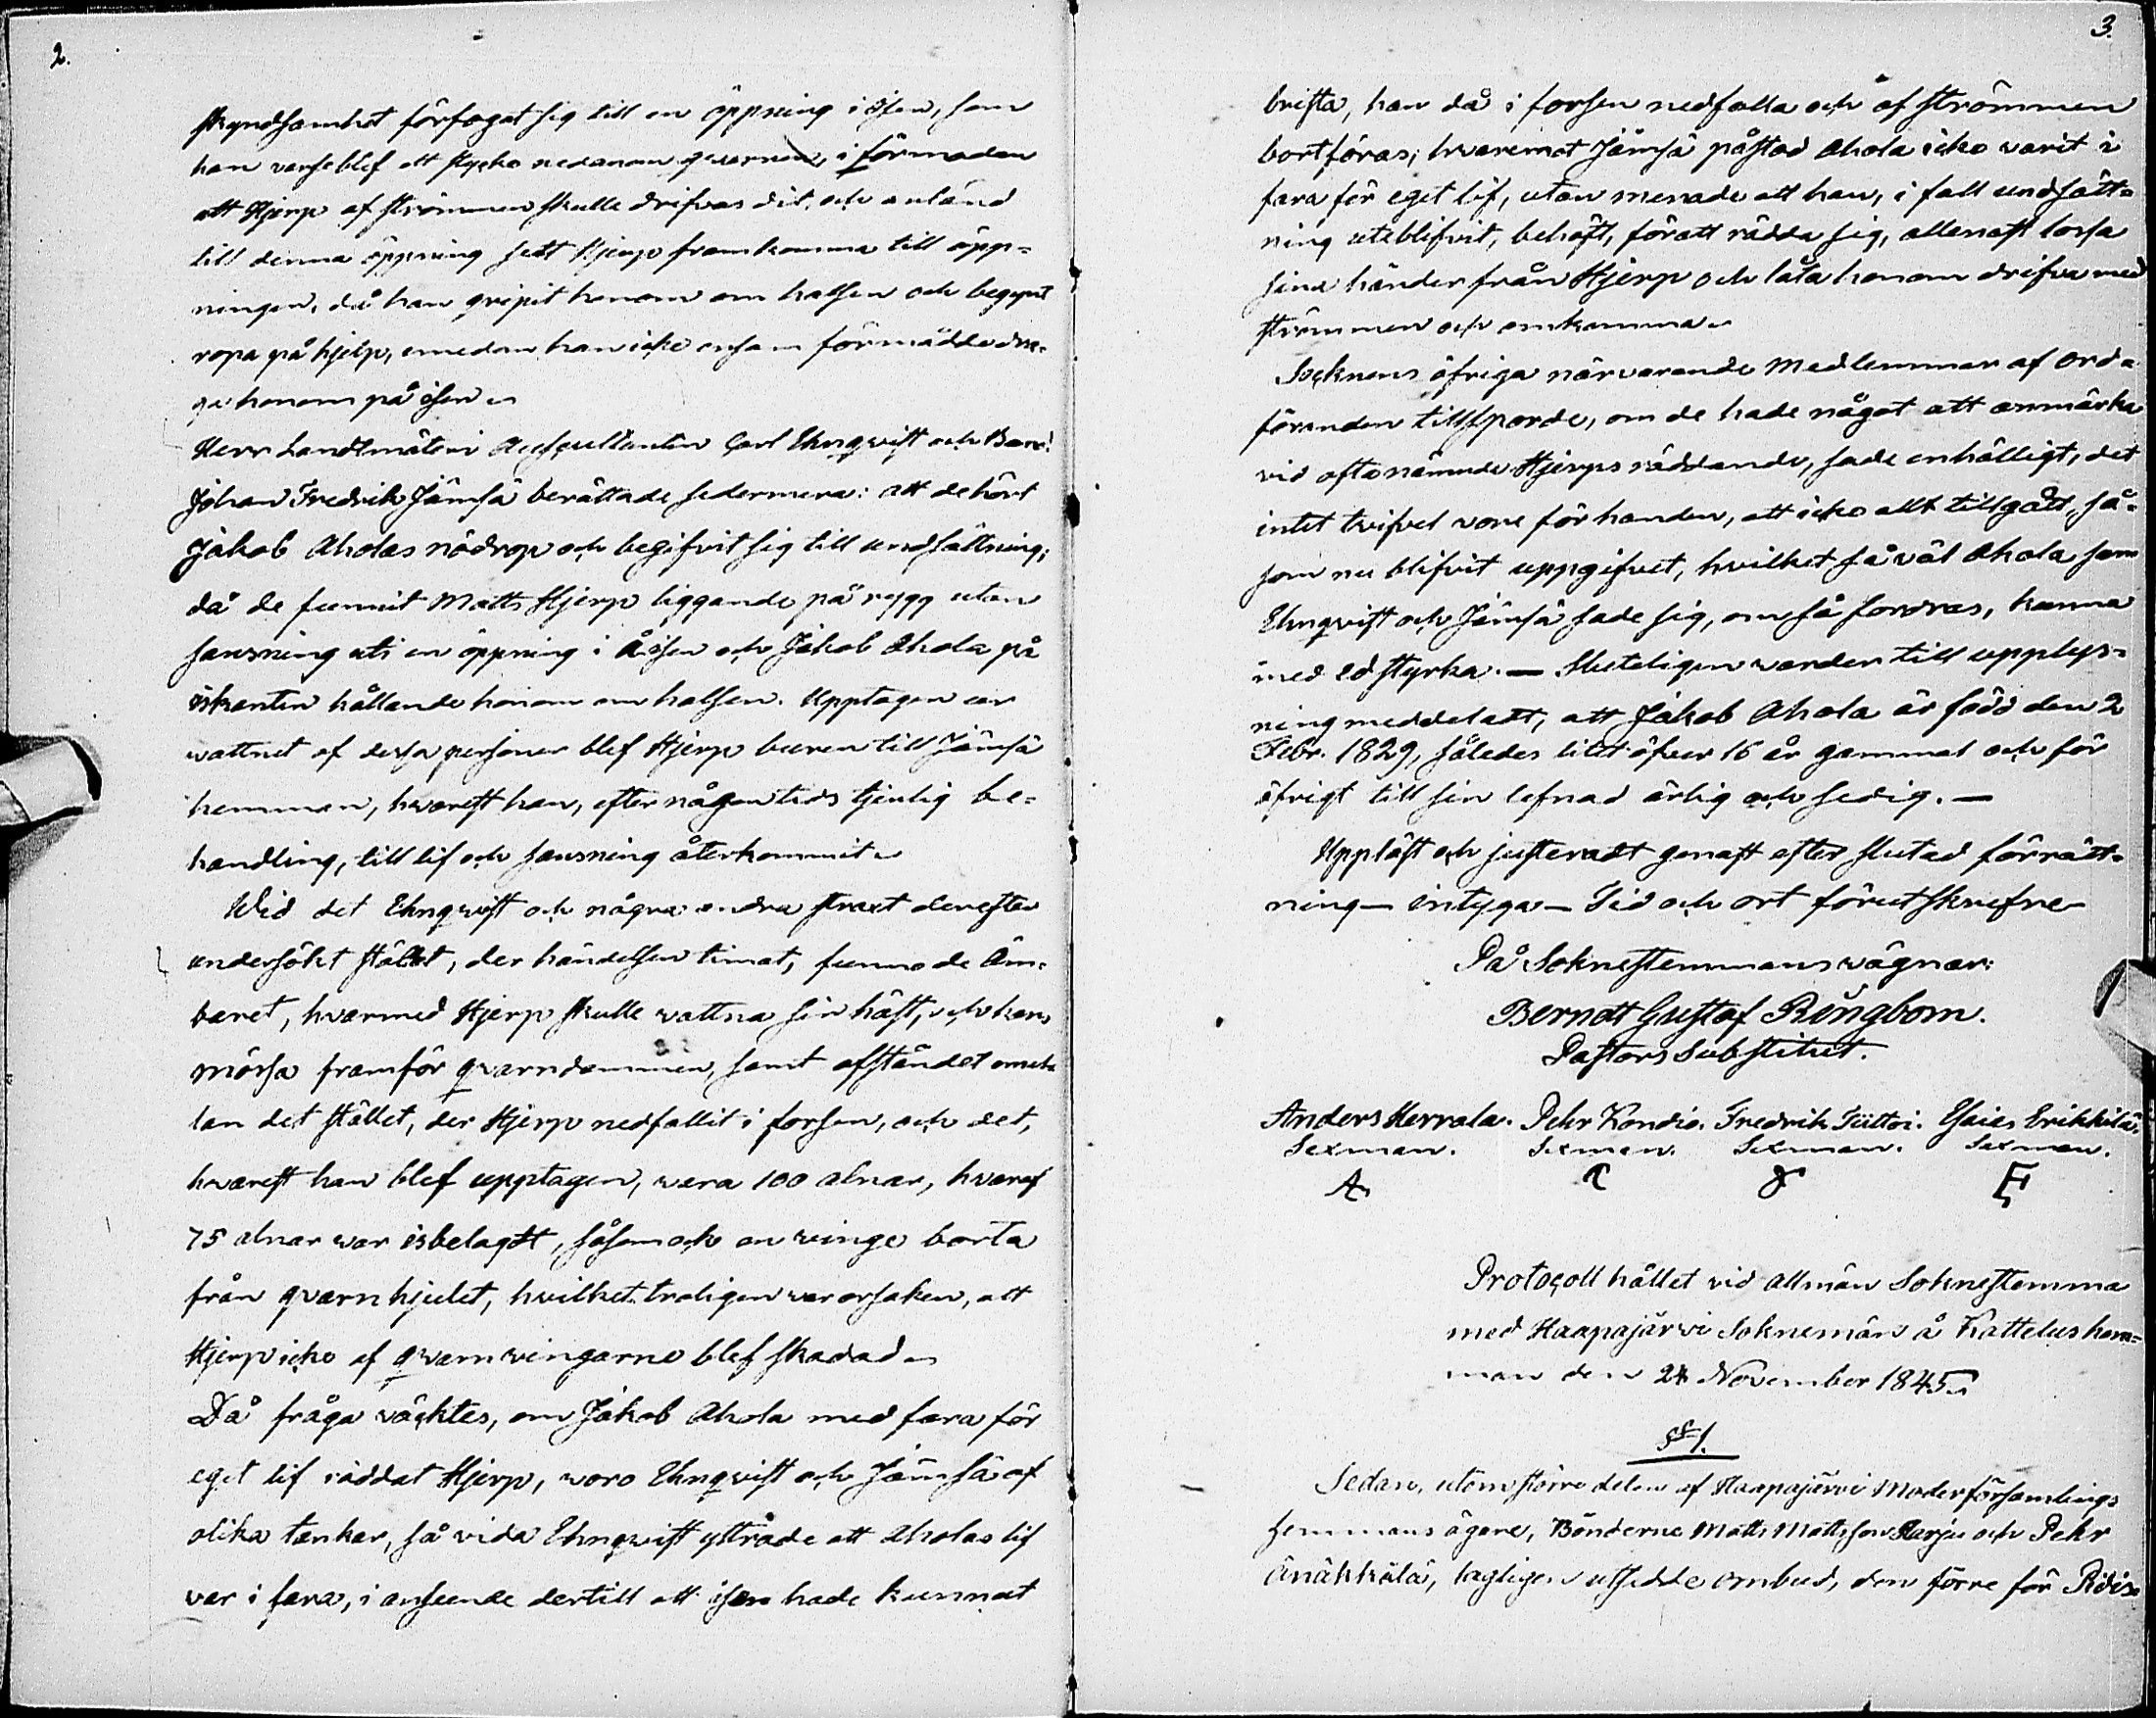 2.
skyndsamhet förfogat sig till en öppning i isen, som
han varseblef ett stycke nedanom qvarnen, i förmodan
att Hjerp af strömmen skulle drifvas dit, och anländ
till denna öppning sett Hjerp framkomma till öpp=
ningen, då han gripit honom om halsen och begynt
ropa på hjelp, emedan han icke ensam förmådde dra=
ga honom på isen.
Herr Landtmäteri Auscultanten Carl Ehnqvist och Bond.
Johan Fredrik Jämsä berättade sedermera: att de hört
Jakob Aholas nödrop och begifvit sig till undsättning,
då de funnit Matts Hjerp liggande på rygg utan
sansning uti en öppning i åisen och Jakob Ahola på
iskanten hållande honom om halsen. Upptagen ur
wattnet af dessa personer blef Hjerp buren till Jämsä
hemman, hvarest han, efter någon tids tjenlig be=
handling, till lif och sansning återkommit.
Wid det Ehnqvist och några andra straxt derefter
undersökt stället, der händelsen timat, funno de äm=
baret, hvarmed Hjerp skulle vattna sin häst, och hans
mössa framför qvarndammen, samt afståndet emel=
lan det stället, der Hjerp nedfallit i forsen, och det,
hvarest han blef upptagen, vara 100 alnar, hvaraf
75 alnar war isbelagdt, såsom ock en vinge borta
från qvarnhjulet, hvilket troligen var orsaken, att
Hjerp icke af qvarnvingarne blef skadad.
Då fråga väcktes, om Jakob Ahola med fara för
eget lif räddat Hjerp, woro Ehnqvist och Jämsä af
olika tankar, så vida Ehnqvist yttrade att Aholas lif
var i fara, i anseende dertill att isen hade kunnat
3.
brista, han då i forsen nedfalla och af strömmen
bortföras; hvaremot Jämsä påstod Ahola icke varit i
fara för eget lif, utan menade att han, i fall undsätt=
ning uteblifvit, behöft, för att rädda sig, allenast lossa
sina händer från Hjerp och låta honom drifva med
strömmen och omkomma.
Socknens öfriga närvarande medlemmar af Ord=
föranden tillsporde, om de hade något att anmärka
vid oftanämnde Hjerps räddande, sade enhälligt, det
intet tvifvel vore förhanden, att icke allt tillgått, så=
som nu blifvit uppgifvet, hvilket så väl Ahola som
Ehnqvist och Jämsä sade sig, om så fordras, kunna
med ed styrka. — Sluteligen warder till upplys=
ning meddeladt, att Jakob Ahola är född den 2
Febr. 1829, således litet öfver 16 år gammal och för
öfrigt till sin lefnad ärlig och sedig. —
Uppläst och justeradt genast efter slutad förrätt=
ning — intyga — Tid och ort förutskrifne
På Soknestemmans vägnar:
Berndt Gustaf Ringbom.
Pastors Substitut.
Anders Herrala. Pehr Kondio. Fredrik Tiittoi. Esaias Erikkilä.
Sexman. Sexman. Sexman. Sexman.
Protocoll hållet vid allmän Soknestemma
med Haapajärvi Soknemän å Kattelus hem=
man den 24 November 1845.
§ 1.
Sedan, utom större delen af Haapajärvi Moderförsamlings
hemmans ägare, Bönderne Matts Mattsson Karju och Pehr
Änäkkälä, lagligen utsedde ombud, den förre för Reis=